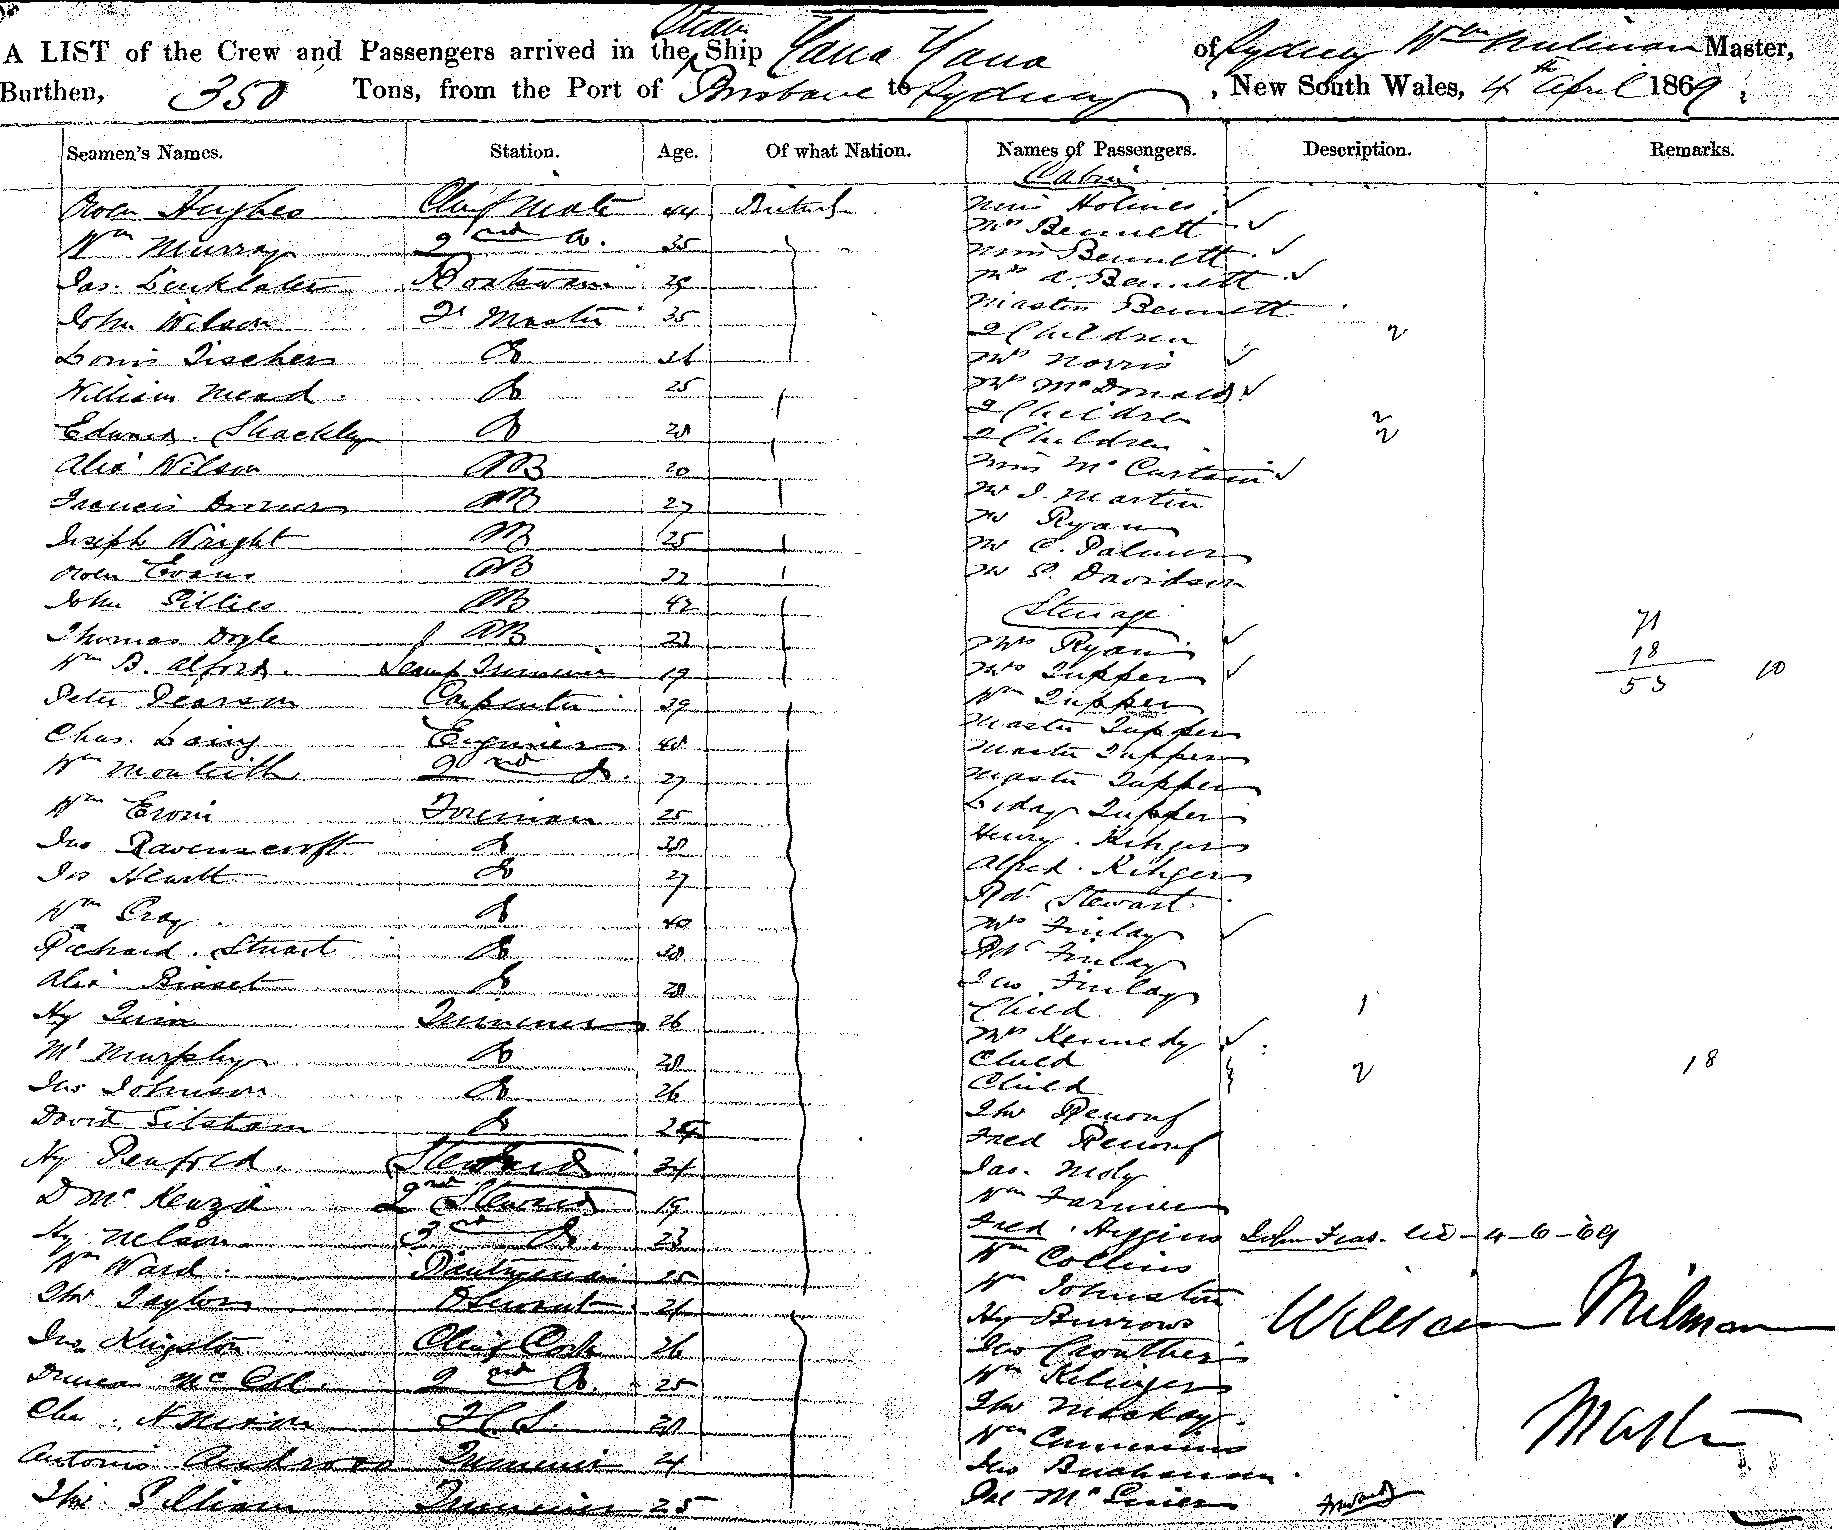 A LIST of the Crew and Passengers arrived in the Steam Ship Yara Yara of Sydney Wm Milman Master,
Burthen, 350 Tons, from the Port of Brisbane to Sydney, New South Wales, 4th April 1869
Seamen's Names. Station. Age. Of what Nation. Names of Passengers. Description. Remarks.
Cabin
Owen Hughes Chief Mate 44 British Miss Holmes
Wm Murray 2nd Do. 35 Mrs Bennett
Jas. Linklater Boatswain 29 Miss Bennett
Mrs A. Bennett
John Wilson Qr Master 35 Master Bennett
2 Children 2
Louis Fischer Do Mrs Norris
William Mead Do 25 Mrs McDonald
2 Children 2
Edward Shackley Do 28 2 Children 2
Alex Wilson AB 20 Miss McCartain
Francis AB 27 Mr J. Martin
Mr Ryan
Joseph Wright AB 25 Mr C. Palmer
Owen Evans AB 22 Mr S. Davidson
John Gillies AB 42 Steerage
71
Thomas Doyle AB 22 Mrs Ryan 18
Wm B. Alford Lamp Trimmer 19 Mrs Tupper 53 10
Peter Pearson Carpenter 39 Wm Tupper
Master Tupper
Chas. Laing Engineer 40 Master Tupper
Wm Monteith 2nd Do. 27 Master Tupper
Wm Foreman 25 Tupper
Jno Ravenscroft Do 38 Henry
Jos Hewitt Do 27 Alfred
Rdt Stewart
Wm Gray Do 40 Mrs Finlay
Richard Stuart Do 38 Rdt Finlay
Alex Bisset Do 28 Jno Finlay
Hy Trimmer 26 Child 1
Mrs Kennedy
Ml Murphy Do 28 Child 18
Jas Johnson Do 26 Child 2
David Do Tho Renouf
Fred Renouf
Hy Penfold Steward 34 Jas.
D McKenzie 2nd Steward 19 Wm Farmer
Hy Nelson 3rd Do. 23 Fred Higgins 4-6-69
Wm Ward Pantryman 25 Wm Collins
Tho Taylor 24 Wm Johnston William Milman
Hy Burrows
Jno Kingston Chief Cook 26 Jno
Duncan McColl 2nd Do. 25 Wm
Cha F.C.S. 28 Tho Mackay Master
Wm
Antonio Trimmer 24 Jno Buchanan
Tho Gilliam Trimmer 25